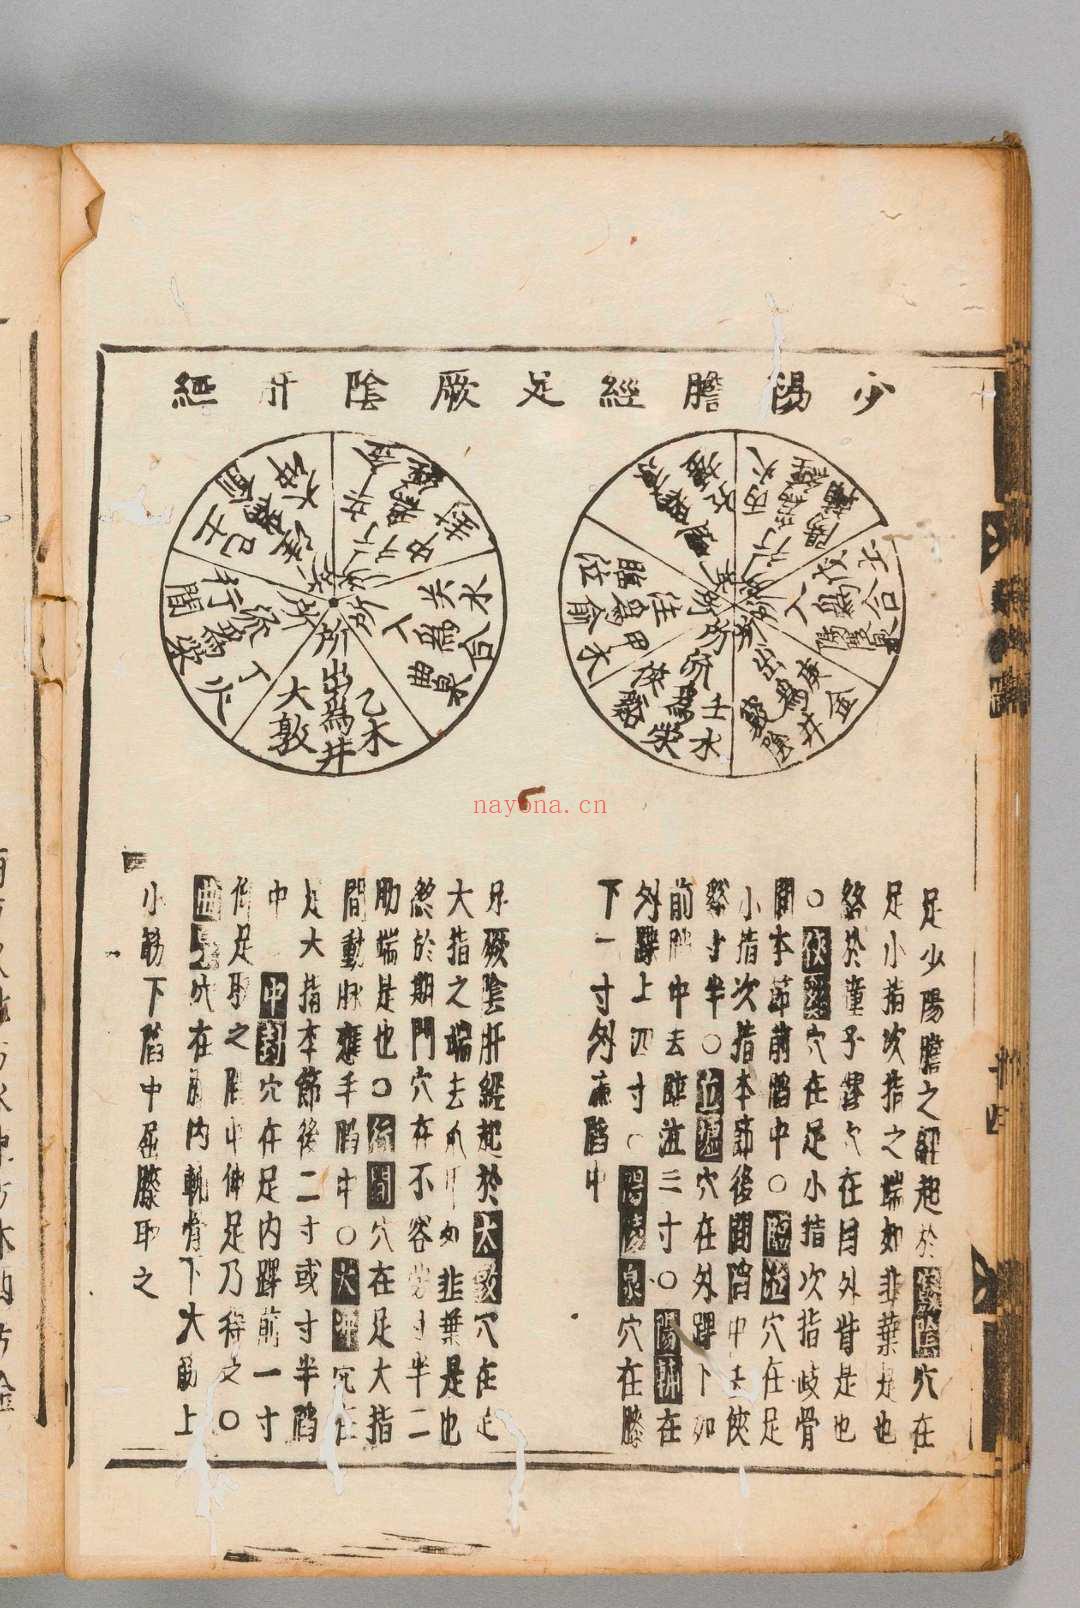 少陽膽經足厥陰肝經
庚金
出為井
竅陰
壬水
流為滎
俠谿
甲木
注為俞
臨泣
丙火
戊土
入為合
陽陵泉
乙木
出為井
大敦
丁火
流為滎
行間
己土
俞
辛金
中封
癸水
入為合
曲泉
足少陽膽之經起於竅陰穴在
足小指次指之端如韭葉是也
終於童子髎穴在目外眥是也
○俠谿穴在足小指次指歧骨
間本節前陷中○臨泣穴在足
小指次指本節後間陷中去俠
谿寸半○丘墟穴在外踝下如
前陷中去臨泣三寸○陽輔在
外踝上四寸○陽陵泉穴在膝
下一寸外廉陷中
足厥陰肝經起於大敦穴在足
大指之端去爪甲如韭葉是也
終於期門穴在不容傍寸半二
肋端是也○行間穴在足大指
間動脉應手陷中○太冲穴在
足大指本節後二寸或寸半陷
中 中封穴在足内踝前一寸
仰足取之陷中伸足乃得之○
曲泉穴在膝内輔骨下大筋上
小筋下陷中屈膝取之
十四
nayona.cn